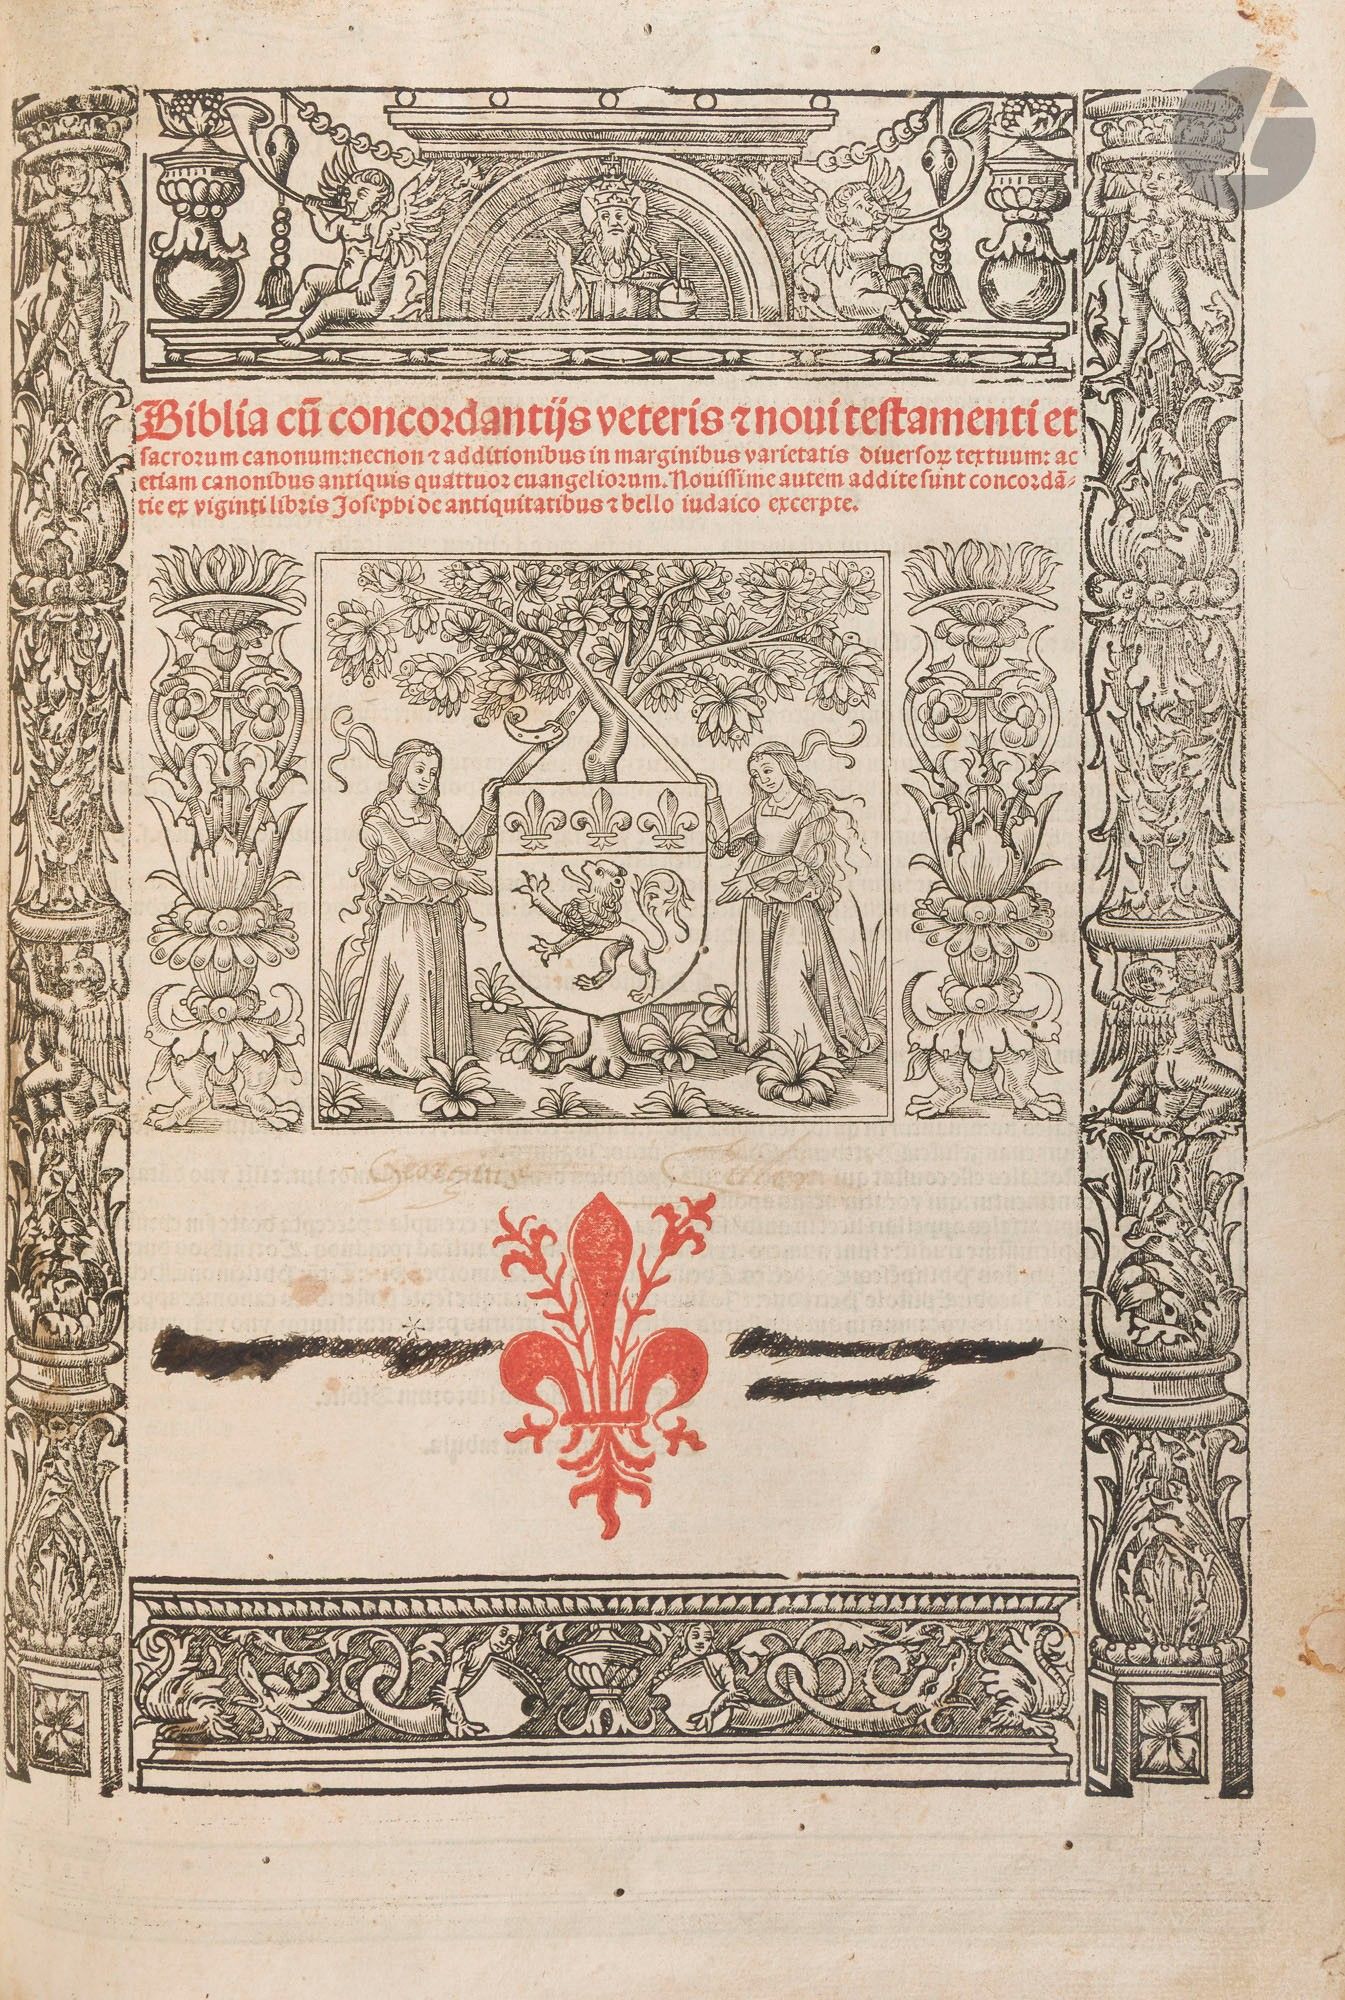 Biblia cū concordantijs veteris ⁊ noui testamenti et
sacrorum canonum: necnon ⁊ additionibus in marginibus varietatis diuersoꝝ textuum: ac
etiam canonibus antiquis quattuor euangeliorum. Nouissime autem addite sunt concordā-
tie ex viginti libris Josephi de antiquitatibus ⁊ bello iudaico excerpte.